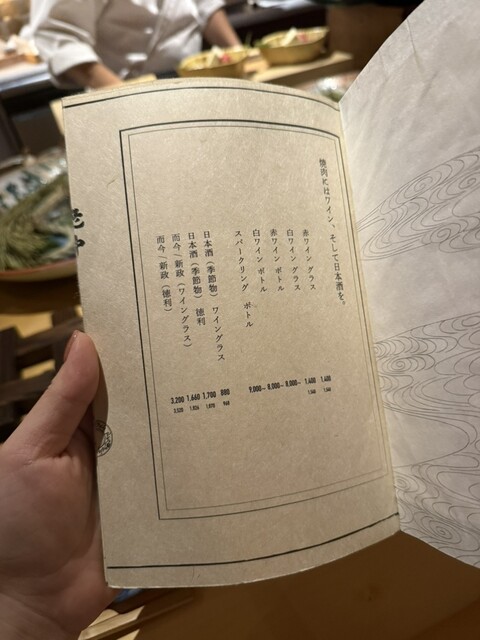 焼肉にはワイン、そして日本酒を。
赤ワイン グラス 1,400 1,540
白ワイン グラス 1,400 1,540
赤ワイン ボトル 8,000~
白ワイン ボトル 8,000~
スパークリング ボトル 9,000~
日本酒(季節物) ワイングラス 880 968
日本酒(季節物) 徳利 1,700 1,870
而今/新政(ワイングラス) 1,660 1,826
而今/新政(徳利) 3,200 3,520